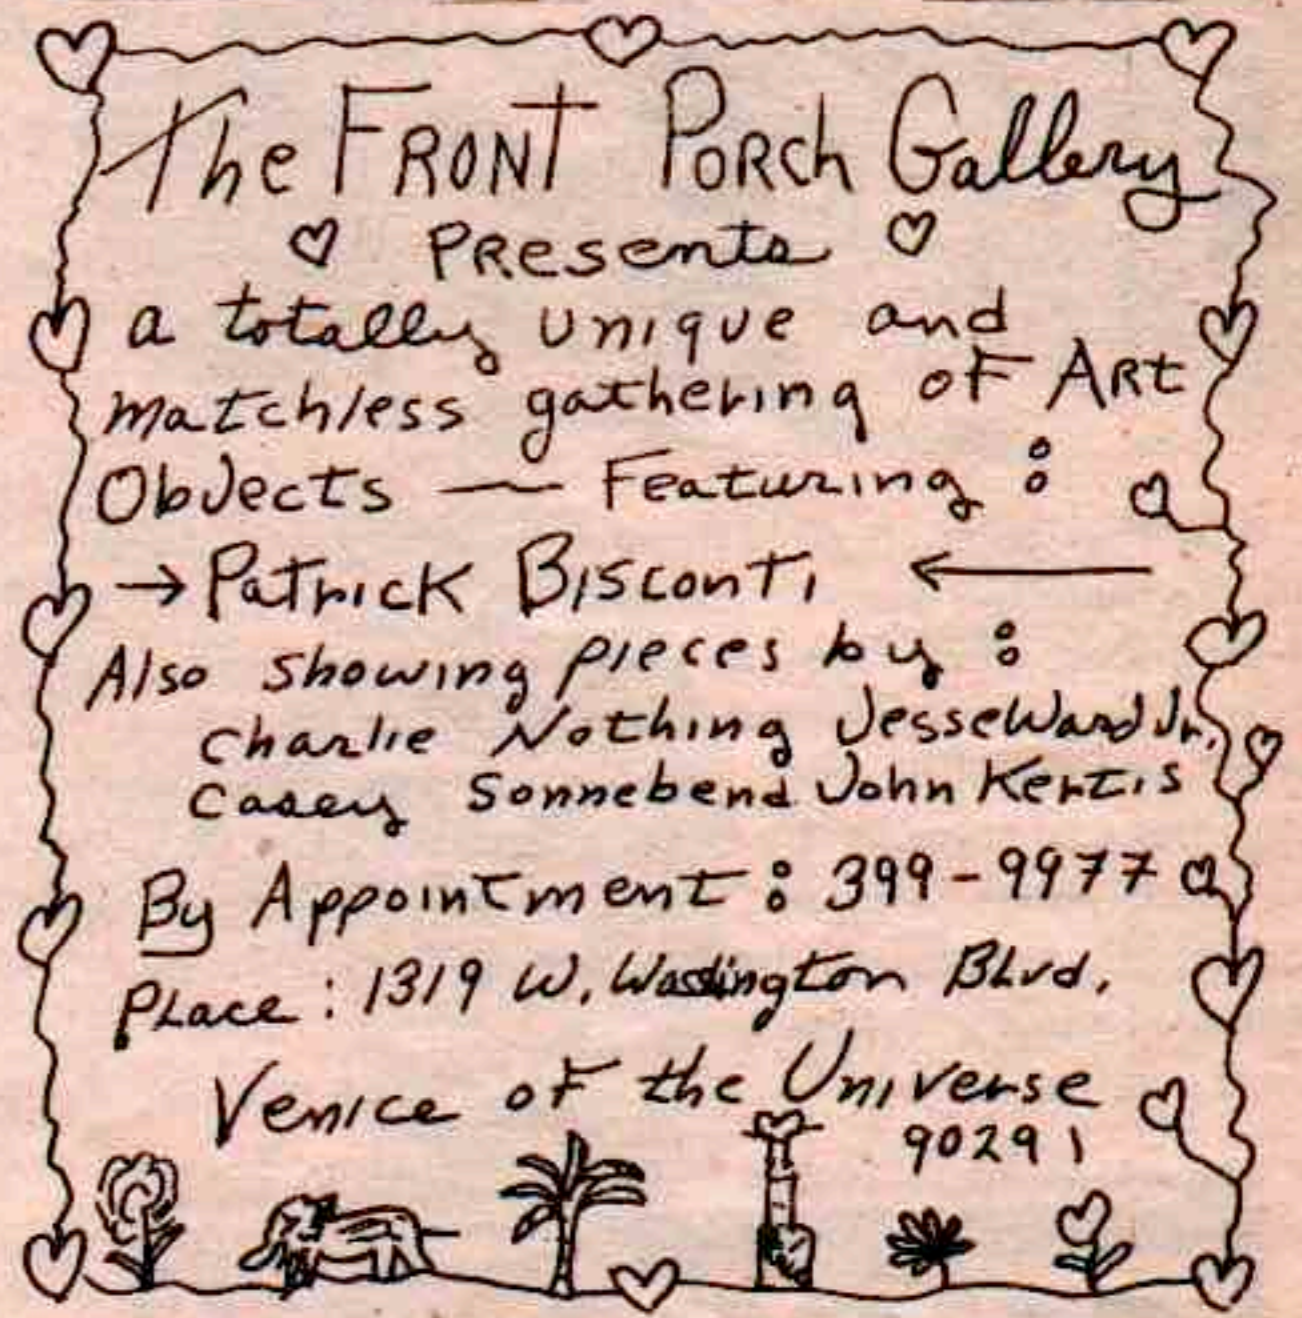 The FRONT PORCh Gallery
PResents
a totally unique and
matchless gathering oF ARt
Objects — Featuring :
→ Patrick Bisconti ←
Also showing pieces by :
Charlie Nothing Jesse Ward Jr.
Casey Sonnebend John Kertis
By Appointment : 399-9977
PLace : 1319 W. Washington BLvd.
Venice oF the Universe
90291